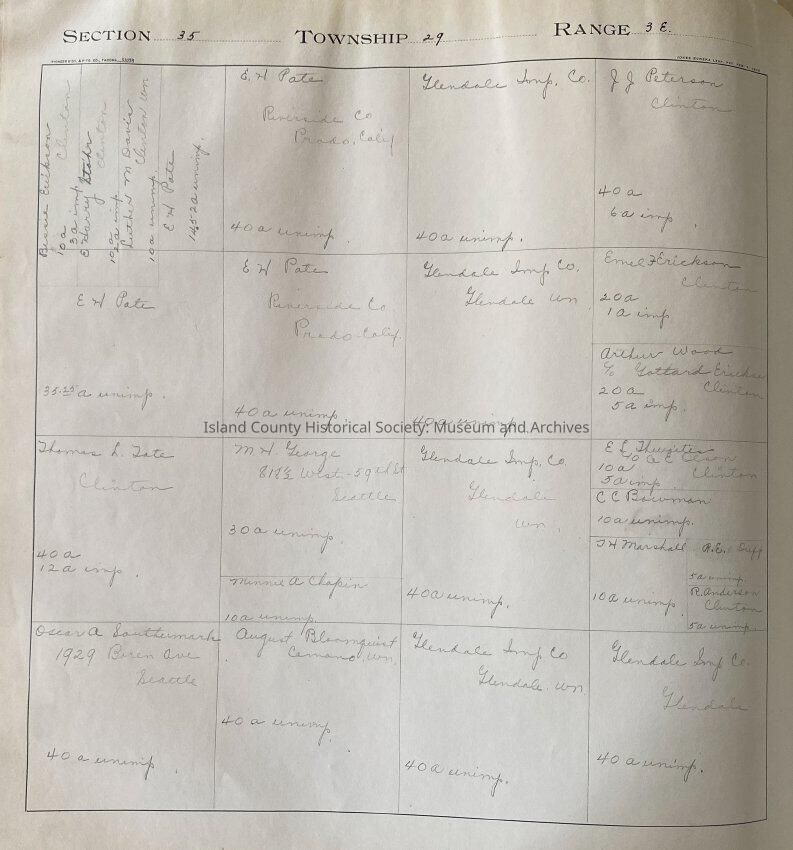 SECTION 35 TOWNSHIP 29 RANGE 3 E.
Bennie Erikson
10 a Clinton
3 a imp
E Harry Stohr
Clinton
10 a
2 a imp
Luther M Davis
Clinton Wn
10 a unimp.
E H Pate
14.52 a unimp.
E. H Pate
Riverside Co
Prado, Calif
40 a unimp.
Glendale Imp. Co.
40 a unimp.
J J Peterson
Clinton
40 a
6 a imp.
E H Pate
35.25 a unimp.
E H Pate
Riverside Co
Prado Calif.
40 a unimp.
Glendale Imp Co.
Glendale Wn
40 a unimp.
Emel F Erickson
Clinton
20 a
1 a imp
Arthur Wood
c/o Gottard Erickson
20 a Clinton
5 a imp.
Island County Historical Society: Museum and Archives
Thomas L. Tate
Clinton
40 a
12 a imp.
M H. George
West - 59th St
Seattle
30 a unimp.
Minnie A Chapin
10 a unimp.
Glendale Imp. Co.
Glendale
Wn.
40 a unimp.
E L Thwaites
c/o A E Olson
10 a Clinton
5 a imp
C C Bowman
10 a unimp.
T H Marshall
10 a unimp.
R.E. Duff
5 a unimp.
R. Anderson
Clinton
5 a unimp.
Oscar A Southermark
1929 Ave
Seattle
40 a unimp.
August Bloomquist
Camano, Wn.
40 a unimp.
Glendale Imp Co
Glendale. Wn.
40 a unimp.
Glendale Imp Co.
Glendale
40 a unimp.